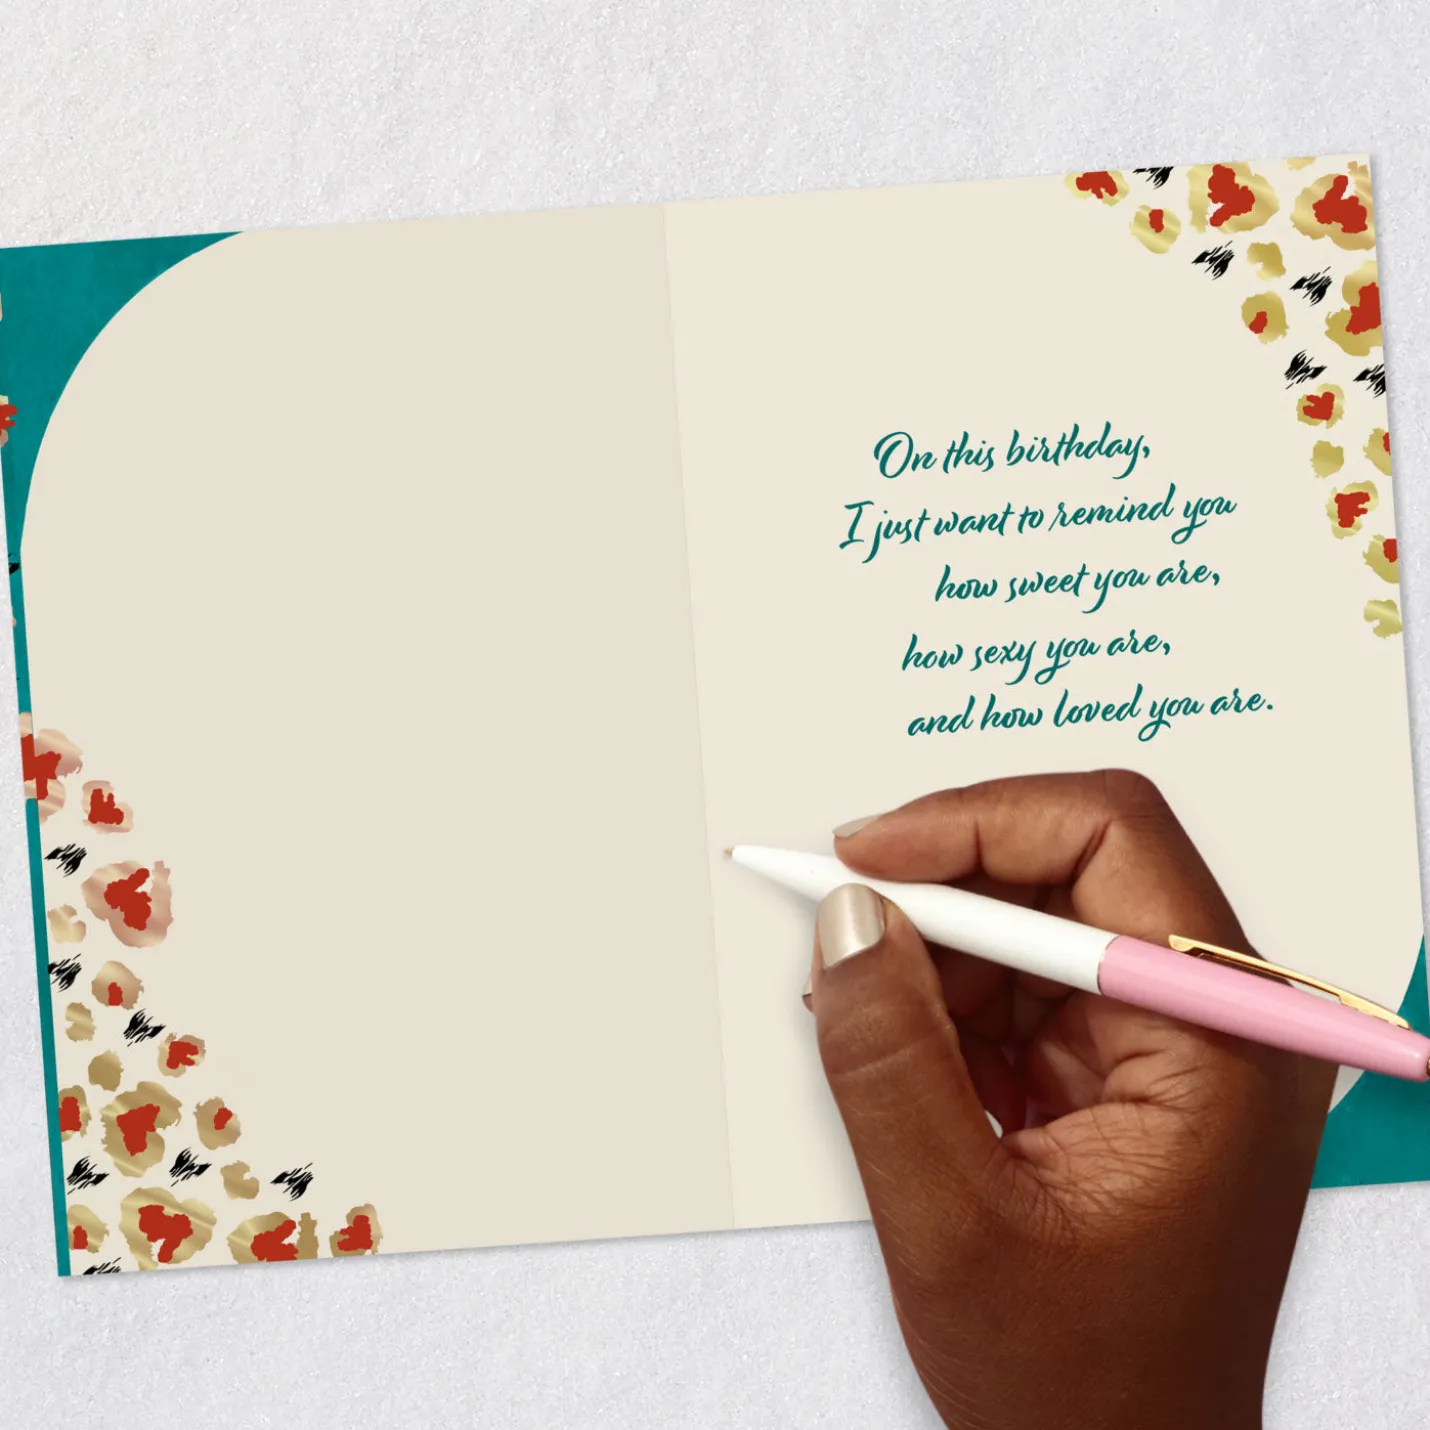 On this birthday,
I just want to remind you
how sweet you are,
how sexy you are,
and how loved you are.